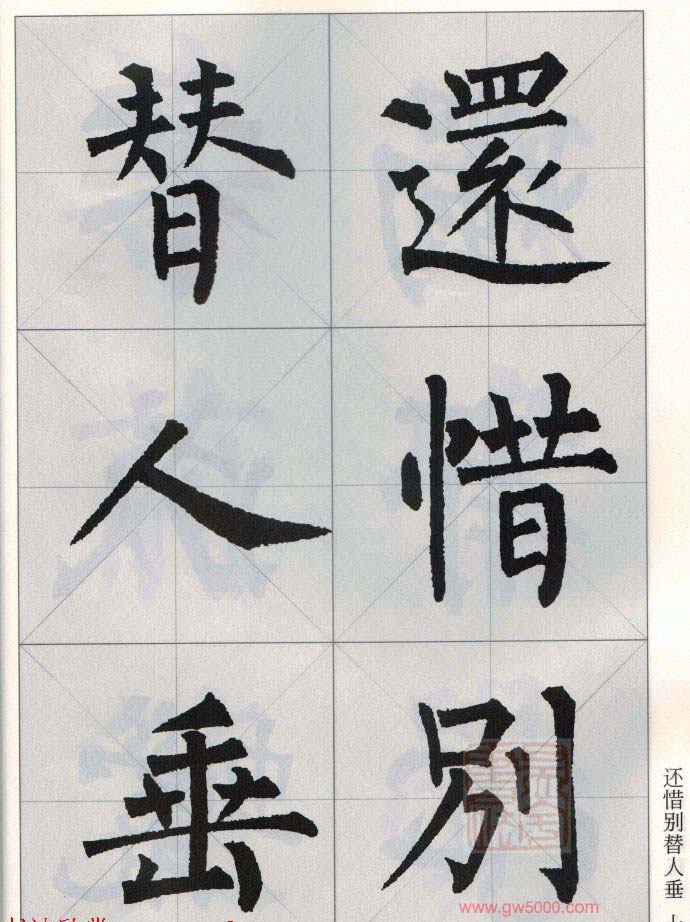 還惜別
替人垂
还惜别替人垂
www.gw5000.com